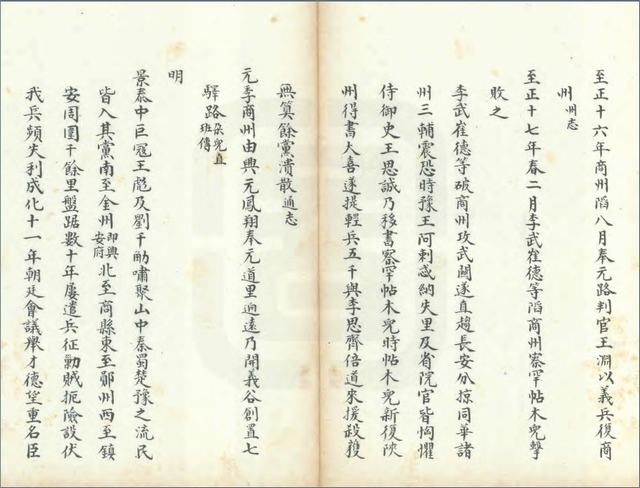 至正十六年商州陷八月奉元路判官王淵以義兵復商
州州志
至正十七年春二月李武崔德等陷商州察罕帖木兒擊
敗之
李武崔德等破商州攻武關遂直趨長安分掠同華諸
州三輔震恐時豫王阿剌忒納失里及省院官皆恟懼
侍御史王思誠乃移書察罕帖木兒時帖木兒新復陝
州得書大喜遂提輕兵五千與李思齊倍道來援殺獲
無算餘黨潰散通志
元季商州由興元鳳翔奉元道里迥遠乃開義谷創置七
驛路朵兒直班傳
明
景泰中巨寇王彪及劉千觔嘯聚山中秦蜀楚豫之流民
皆入其黨南至金州即興安府北至商縣東至鄖州西至鎮
安周圍千餘里盤踞數十年屢遣兵征勦賊扼險設伏
我兵頻失利成化十一年朝廷會議舉才德望重名臣